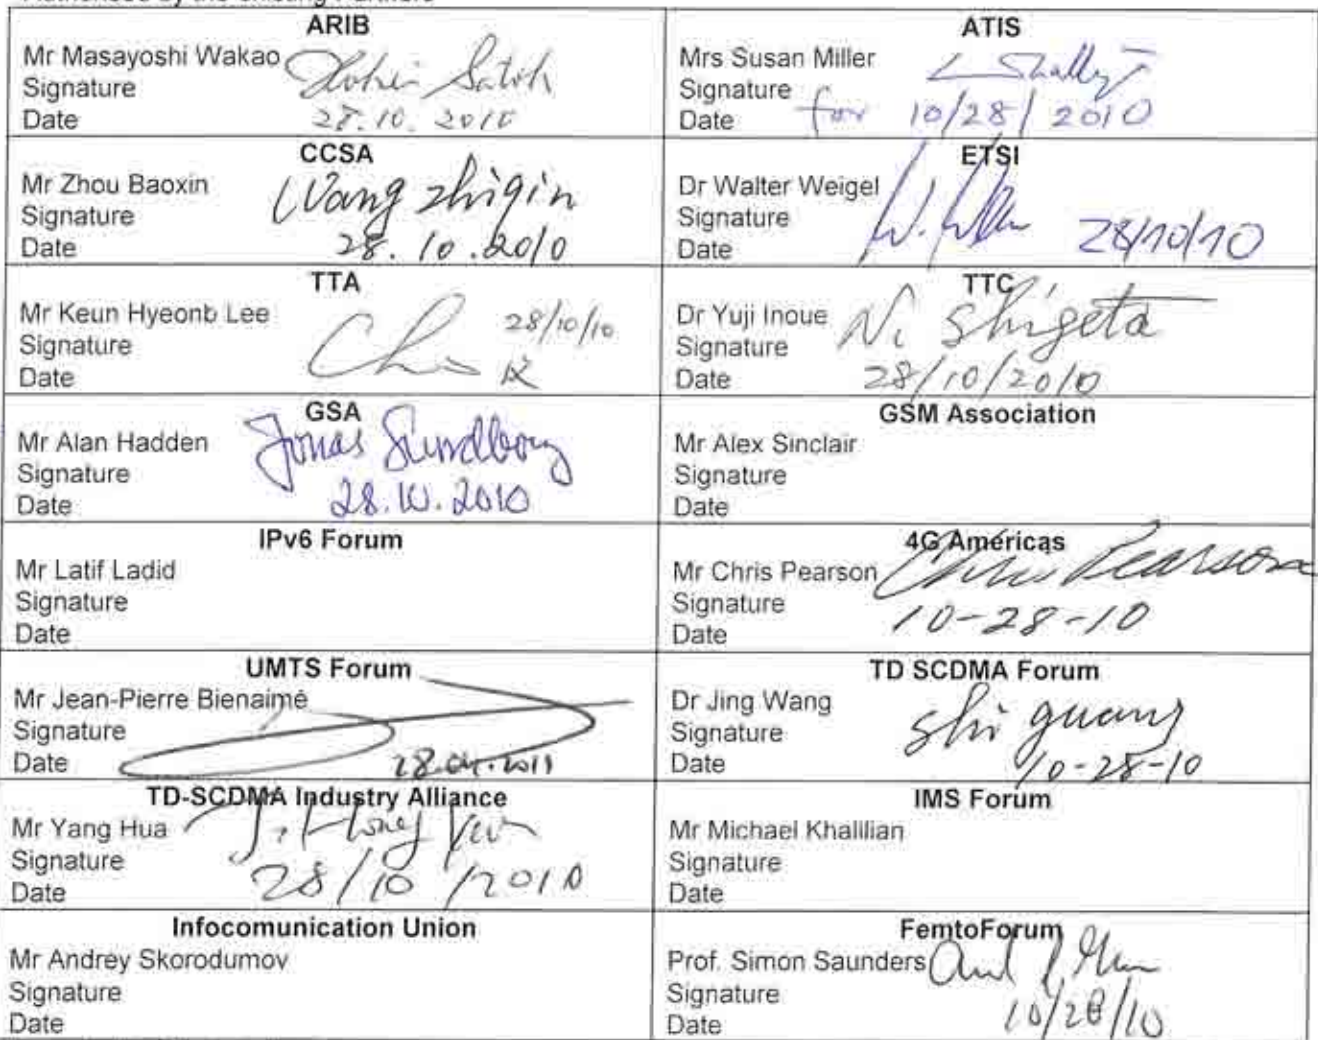 ARIB
Mr Masayoshi Wakao
Signature Satoh
Date 28.10.2010
ATIS
Mrs Susan Miller
Signature
Date for 10/28/2010
CCSA
Mr Zhou Baoxin
Signature Wang zhiqin
Date 28.10.2010
ETSI
Dr Walter Weigel
Signature
Date 28/10/10
TTA
Mr Keun Hyeonb Lee
Signature 28/10/10
Date
TTC
Dr Yuji Inoue
Signature N. Shigeta
Date 28/10/2010
GSA
Mr Alan Hadden
Signature Jonas Sundborg
Date 28.10.2010
GSM Association
Mr Alex Sinclair
Signature
Date
IPv6 Forum
Mr Latif Ladid
Signature
Date
4G Americas
Mr Chris Pearson Chris Pearson
Signature
Date 10-28-10
UMTS Forum
Mr Jean-Pierre Bienaimé
Signature
Date
TD SCDMA Forum
Dr Jing Wang
Signature shi guang
Date 10-28-10
TD-SCDMA Industry Alliance
Mr Yang Hua
Signature
Date 28/10/2010
IMS Forum
Mr Michael Khalilian
Signature
Date
Infocomunication Union
Mr Andrey Skorodumov
Signature
Date
FemtoForum
Prof. Simon Saunders
Signature
Date 10/28/10